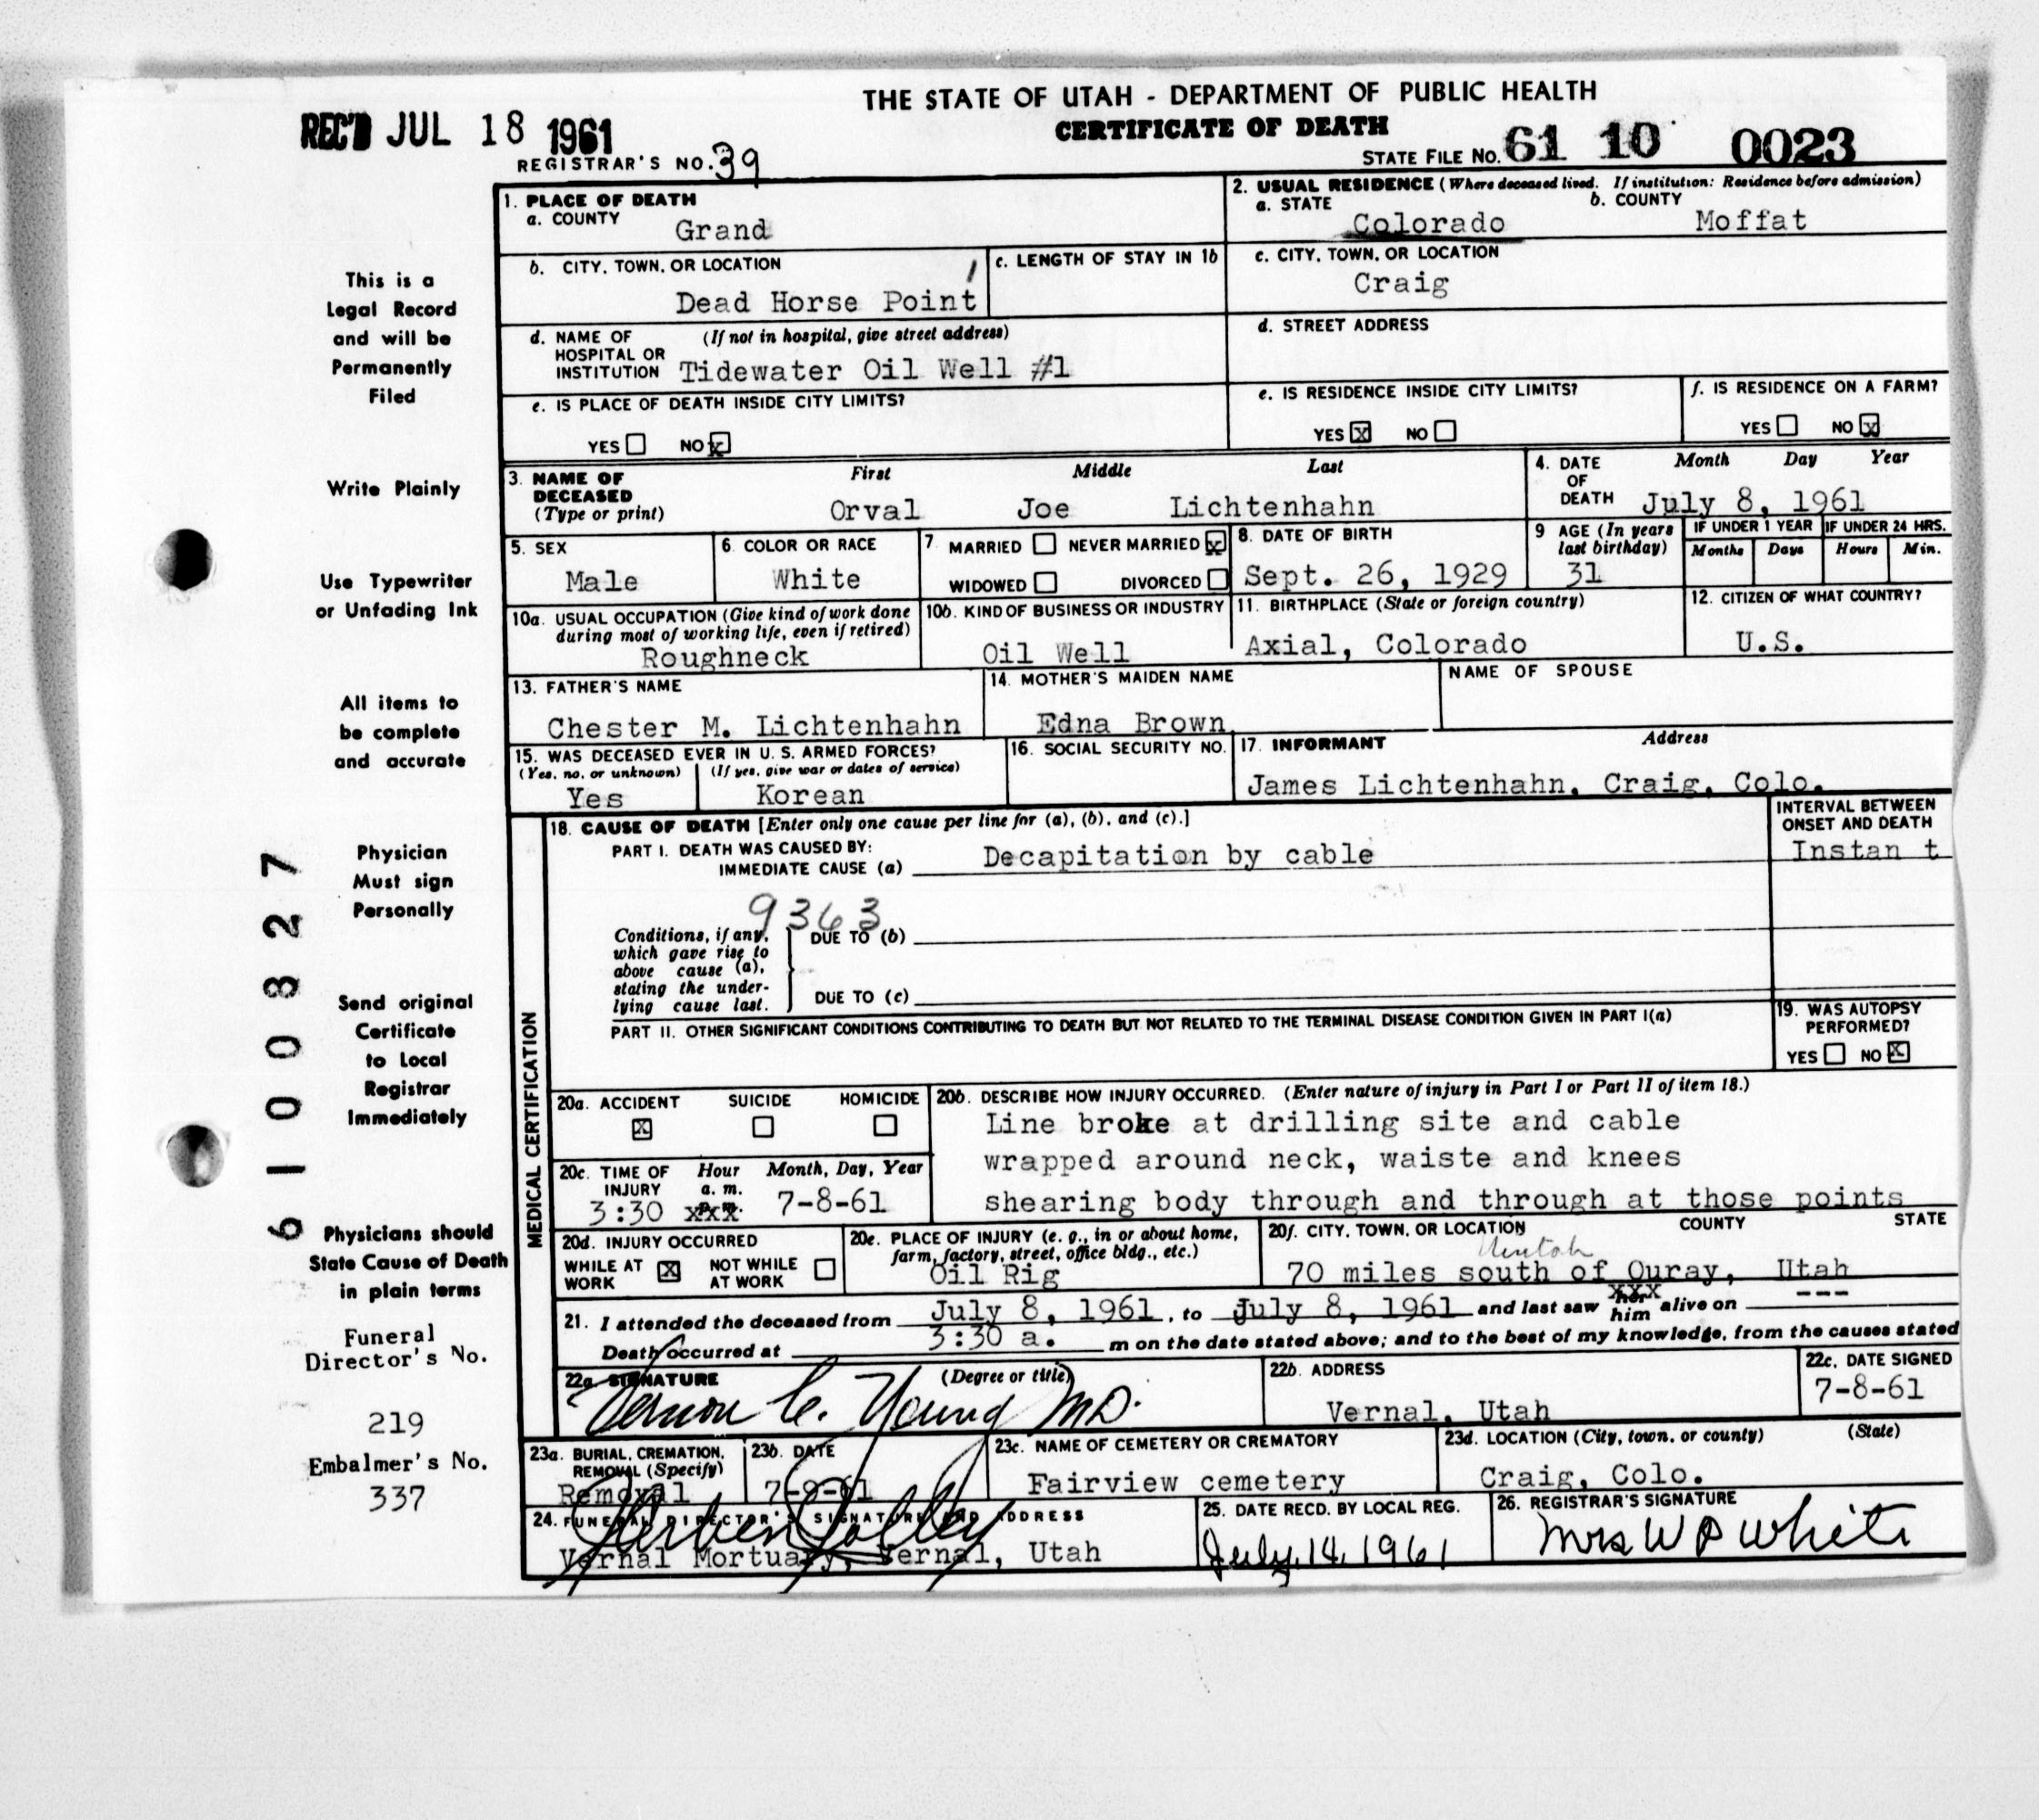 THE STATE OF UTAH - DEPARTMENT OF PUBLIC HEALTH
REC'D JUL 18 1961 CERTIFICATE OF DEATH
REGISTRAR'S NO. 39 STATE FILE NO. 61 10 0023
1. PLACE OF DEATH 2. USUAL RESIDENCE (Where deceased lived. If institution: Residence before admission)
a. COUNTY Grand a. STATE Colorado b. COUNTY Moffat
b. CITY, TOWN, OR LOCATION c. LENGTH OF STAY IN 1b c. CITY, TOWN, OR LOCATION
Dead Horse Point Craig
d. NAME OF (If not in hospital, give street address) d. STREET ADDRESS
HOSPITAL OR
INSTITUTION Tidewater Oil Well #1
e. IS PLACE OF DEATH INSIDE CITY LIMITS? e. IS RESIDENCE INSIDE CITY LIMITS? f. IS RESIDENCE ON A FARM?
YES NO x YES x NO YES NO x
3. NAME OF First Middle Last 4. DATE Month Day Year
DECEASED OF
(Type or print) Orval Joe Lichtenhahn DEATH July 8, 1961
5. SEX 6. COLOR OR RACE 7. MARRIED NEVER MARRIED x 8. DATE OF BIRTH 9 AGE (In years IF UNDER 1 YEAR IF UNDER 24 HRS.
last birthday) Months Days Hours Min.
Male White WIDOWED DIVORCED Sept. 26, 1929 31
10a. USUAL OCCUPATION (Give kind of work done 10b. KIND OF BUSINESS OR INDUSTRY 11. BIRTHPLACE (State or foreign country) 12. CITIZEN OF WHAT COUNTRY?
during most of working life, even if retired)
Roughneck Oil Well Axial, Colorado U.S.
13. FATHER'S NAME 14. MOTHER'S MAIDEN NAME NAME OF SPOUSE
Chester M. Lichtenhahn Edna Brown
15. WAS DECEASED EVER IN U. S. ARMED FORCES? 16. SOCIAL SECURITY NO. 17. INFORMANT Address
(Yes, no, or unknown) (If yes, give war or dates of service)
Yes Korean James Lichtenhahn, Craig, Colo.
18. CAUSE OF DEATH [Enter only one cause per line for (a), (b), and (c).] INTERVAL BETWEEN
ONSET AND DEATH
PART I. DEATH WAS CAUSED BY:
IMMEDIATE CAUSE (a) Decapitation by cable Instan t
9363
Conditions, if any, DUE TO (b)
which gave rise to
above cause (a),
stating the under-
lying cause last. DUE TO (c)
PART II. OTHER SIGNIFICANT CONDITIONS CONTRIBUTING TO DEATH BUT NOT RELATED TO THE TERMINAL DISEASE CONDITION GIVEN IN PART I(a) 19. WAS AUTOPSY
PERFORMED?
YES NO X
MEDICAL CERTIFICATION
20a. ACCIDENT SUICIDE HOMICIDE 20b. DESCRIBE HOW INJURY OCCURRED. (Enter nature of injury in Part I or Part II of item 18.)
X Line broke at drilling site and cable
wrapped around neck, waiste and knees
shearing body through and through at those points
20c. TIME OF Hour Month, Day, Year
INJURY a. m.
3:30 xxx 7-8-61
20d. INJURY OCCURRED 20e. PLACE OF INJURY (e. g., in or about home, 20f. CITY, TOWN, OR LOCATION COUNTY STATE
farm, factory, street, office bldg., etc.) Uintah
WHILE AT WORK X NOT WHILE AT WORK Oil Rig 70 miles south of Ouray, Utah
21. I attended the deceased from July 8, 1961, to July 8, 1961 and last saw xxx her him alive on ---
Death occurred at 3:30 a. m on the date stated above; and to the best of my knowledge, from the causes stated
22a. SIGNATURE (Degree or title) 22b. ADDRESS 22c. DATE SIGNED
Vernon C. Young MD. Vernal, Utah 7-8-61
23a. BURIAL, CREMATION, 23b. DATE 23c. NAME OF CEMETERY OR CREMATORY 23d. LOCATION (City, town, or county) (State)
REMOVAL (Specify)
Removal 7-9-61 Fairview cemetery Craig, Colo.
24. FUNERAL DIRECTOR'S SIGNATURE AND ADDRESS 25. DATE RECD. BY LOCAL REG. 26. REGISTRAR'S SIGNATURE
Vernal Mortuary, Vernal, Utah July 14, 1961 Mrs W D White
This is a
Legal Record
and will be
Permanently
Filed
Write Plainly
Use Typewriter
or Unfading Ink
All items to
be complete
and accurate
Physician
Must sign
Personally
Send original
Certificate
to Local
Registrar
Immediately
Physicians should
State Cause of Death
in plain terms
Funeral
Director's No.
219
Embalmer's No.
337
6100827